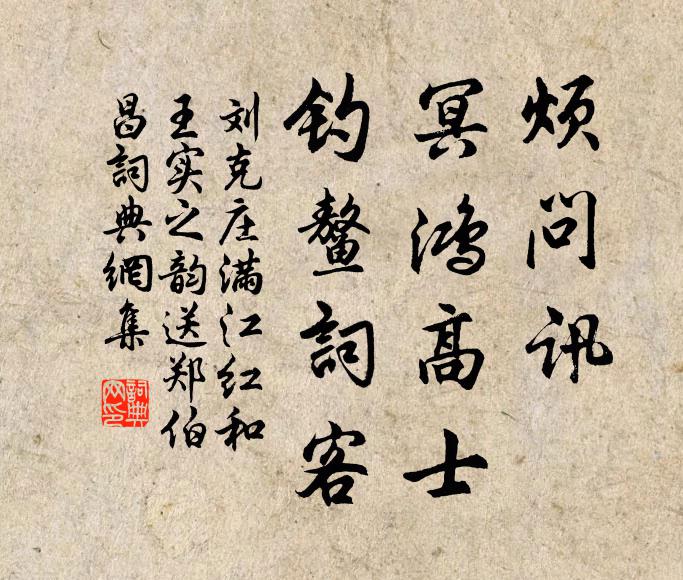 烦问讯
冥鸿高士
钓鳌詞客
刘克庄满江红和
王实之韵送郑伯
昌詞典網集
詞典
网印